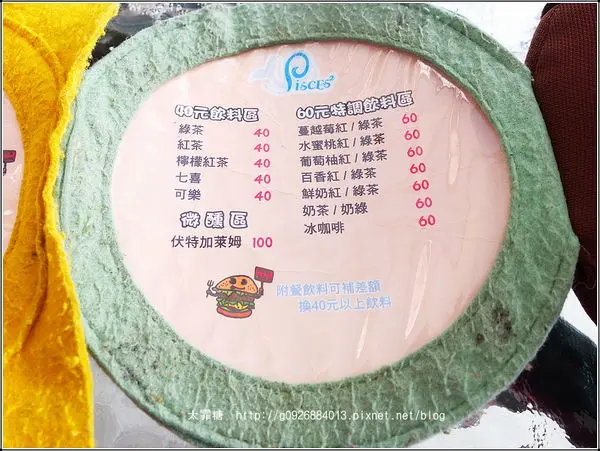 Pisces²
40元飲料區
綠茶 40
紅茶 40
檸檬紅茶 40
七喜 40
可樂 40
微醺區
伏特加萊姆 100
60元特調飲料區
蔓越莓紅/綠茶 60
水蜜桃紅/綠茶 60
葡萄柚紅/綠茶 60
百香紅/綠茶 60
鮮奶紅/綠茶 60
奶茶/奶綠 60
冰咖啡 60
附餐飲料可補差額
換40元以上飲料
太罪糖 http://g0926884013.pixnet.net/blog